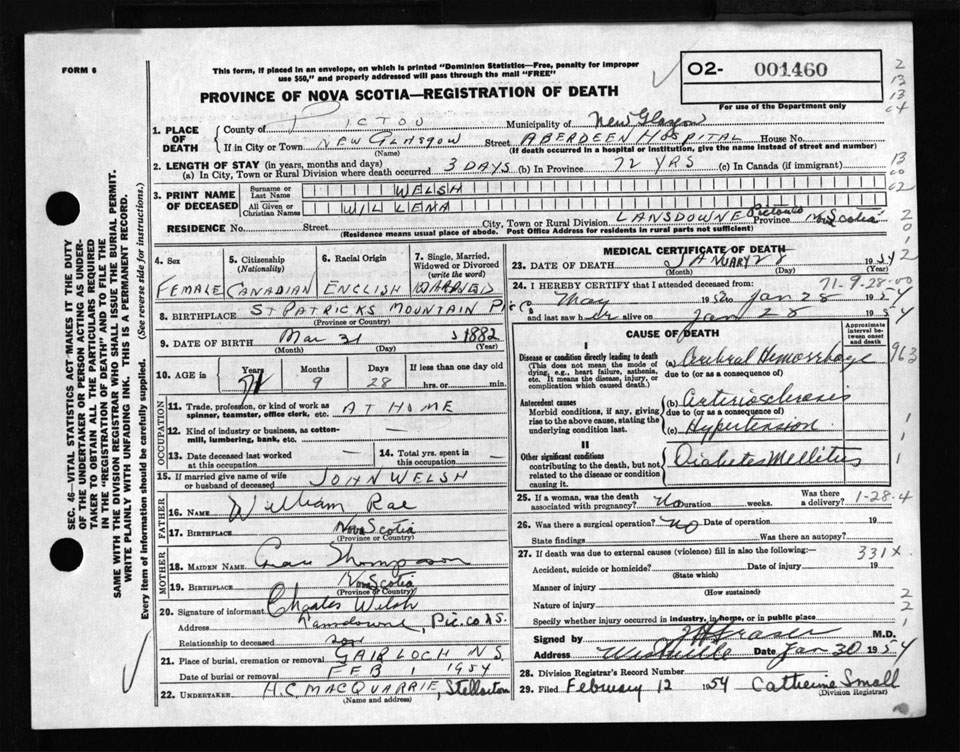 FORM 6
This form, if placed in an envelope, on which is printed "Dominion Statistics—Free, penalty for improper
use $50," and properly addressed will pass through the mail "FREE"
02- 001460
For use of the Department only
PROVINCE OF NOVA SCOTIA—REGISTRATION OF DEATH
1. PLACE OF DEATH
County of PICTOU Municipality of New Glasgow
If in City or Town NEW GLASGOW Street ABERDEEN HOSPITAL House No.
(Name) (If death occurred in a hospital or institution, give the name instead of street and number)
2. LENGTH OF STAY (in years, months and days)
(a) In City, Town or Rural Division where death occurred 3 DAYS (b) In Province 72 YRS (c) In Canada (if immigrant)
3. PRINT NAME OF DECEASED
Surname or Last Name WELSH
All Given or Christian Names WILLIENA
RESIDENCE No. Street City, Town or Rural Division LANSDOWNE Pictou Co Province N. Scotia
(Residence means usual place of abode. Post Office Address for residents in rural parts not sufficient)
4. Sex
FEMALE
5. Citizenship
(Nationality)
CANADIAN
6. Racial Origin
ENGLISH
7. Single, Married,
Widowed or Divorced
(write the word)
8. BIRTHPLACE ST PATRICKS MOUNTAIN Pic Co
(Province or Country)
9. DATE OF BIRTH Mar 31 1882
(Month) (Day) (Year)
10. AGE in Years Months Days If less than one day old
71 9 28 hrs. or min.
OCCUPATION
11. Trade, profession, or kind of work as
spinner, teamster, office clerk, etc. AT HOME
12. Kind of industry or business, as cotton-
mill, lumbering, bank, etc. —
13. Date deceased last worked
at this occupation —
14. Total yrs. spent in
this occupation —
15. If married give name of wife
or husband of deceased JOHN WELSH
FATHER
16. Name William Rae
17. Birthplace Nova Scotia
(Province or Country)
MOTHER
18. MAIDEN NAME Thompson
19. BIRTHPLACE Nova Scotia
(Province or Country)
20. Signature of informant Charles Welsh
Address Lansdowne, Pic. co N.S.
Relationship to deceased son
21. Place of burial, cremation or removal GAIRLOCH N.S.
Date of burial or removal FEB 1 1954
22. UNDERTAKER H.C. MACQUARRIE, Stellarton
(Name and address)
MEDICAL CERTIFICATE OF DEATH
23. DATE OF DEATH JANUARY 28 1954
(Month) (Day) (Year)
24. I HEREBY CERTIFY that I attended deceased from: 71-9-28-00
May Jan 28 1954
and last saw her alive on Jan 28 1954
CAUSE OF DEATH
Approximate
interval be-
tween onset
and death
I
Disease or condition directly leading to death
(This does not mean the mode of
dying, e.g., heart failure, asthenia,
etc. It means the disease, injury, or
complication which caused death.)
(a) Cerebral Hemorrhage
due to (or as a consequence of)
963
Antecedent causes
Morbid conditions, if any, giving
rise to the above cause, stating the
underlying condition last.
(b) Arteriosclerosis
due to (or as a consequence of)
(c) Hypertension
II
Other significant conditions
contributing to the death, but not
related to the disease or condition
causing it.
Diabetes Mellitus
25. If a woman, was the death
associated with pregnancy? No Duration weeks. Was there
a delivery? 1-28-4
26. Was there a surgical operation? No Date of operation 19
State findings Was there an autopsy?
27. If death was due to external causes (violence) fill in also the following:— 331X
Accident, suicide or homicide? Date of injury 19
(State which)
Manner of injury
(How sustained)
Nature of injury
Specify whether injury occurred in industry, in home, or in public place
Signed by Fraser M.D.
Address Westville Date Jan 30 1954
28. Division Registrar's Record Number
29. Filed February 12 1954 Catherine Small
(Division Registrar)
SEC. 46—VITAL STATISTICS ACT "MAKES IT THE DUTY
OF THE UNDERTAKER OR PERSON ACTING AS UNDER-
TAKER TO OBTAIN ALL THE PARTICULARS REQUIRED
IN THE "REGISTRATION OF DEATH" AND TO FILE THE
SAME WITH THE DIVISION REGISTRAR WHO SHALL ISSUE THE BURIAL PERMIT.
WRITE PLAINLY WITH UNFADING INK. THIS IS A PERMANENT RECORD.
Every item of information should be carefully supplied. (See reverse side for instructions.)